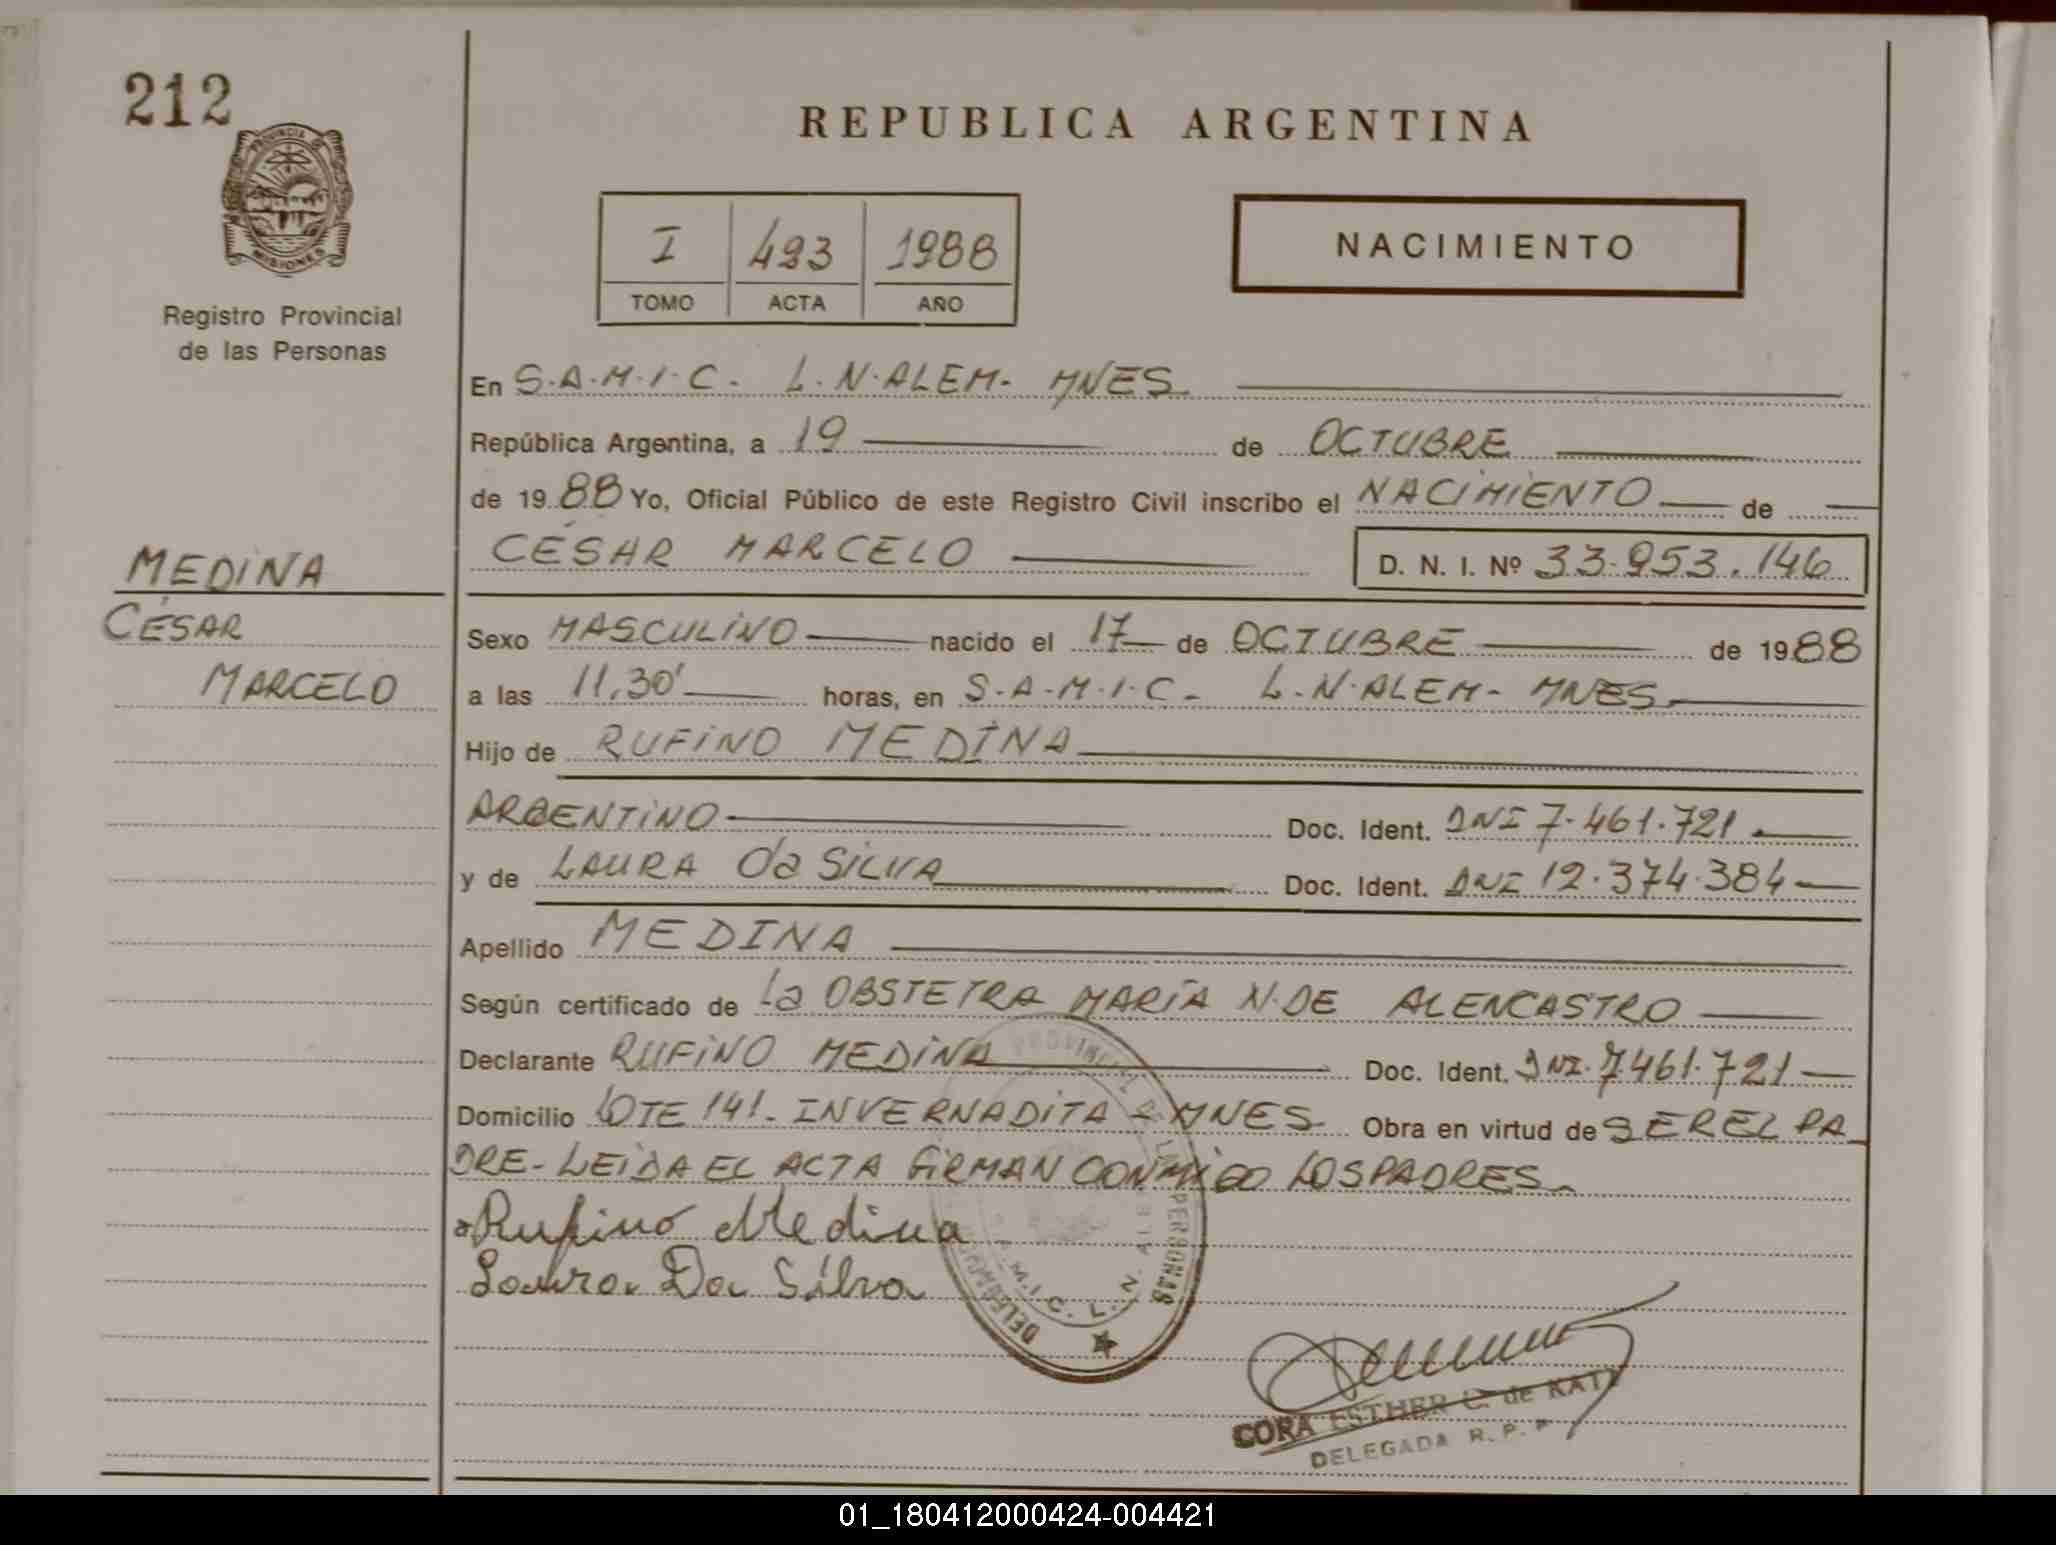 212
PROVINCIA DE
MISIONES
Registro Provincial
de las Personas
REPUBLICA ARGENTINA
I 493 1988
TOMO ACTA AÑO
NACIMIENTO
En S.A.M.I.C. L.N.ALEM- MNES
República Argentina, a 19 de OCTUBRE
de 1988 Yo, Oficial Público de este Registro Civil inscribo el NACIMIENTO de
CÉSAR MARCELO D. N. I. Nº 33.953.146
MEDINA
CÉSAR
MARCELO
Sexo MASCULINO nacido el 17 de OCTUBRE de 1988
a las 11,30' horas, en S.A.M.I.C. L.N.ALEM- MNES
Hijo de RUFINO MEDINA
ARGENTINO Doc. Ident. DNI 7.461.721
y de LAURA da SILVA Doc. Ident. DNI 12.374.384
Apellido MEDINA
Según certificado de La OBSTETRA MARÍA N. DE ALENCASTRO
Declarante RUFINO MEDINA Doc. Ident. DNI. 7461.721
Domicilio LOTE 141. INVERNADITA - MNES Obra en virtud de SER EL PA
DRE- LEIDA EL ACTA FIRMAN CONMIGO LOS PADRES
Rufino Medina
Laura Da Silva
PROVINCIAL DE LAS PERSONAS
M.I.C. L.N.
CORA ESTHER C. de KATZ
DELEGADA R. P. P.
01_180412000424-004421